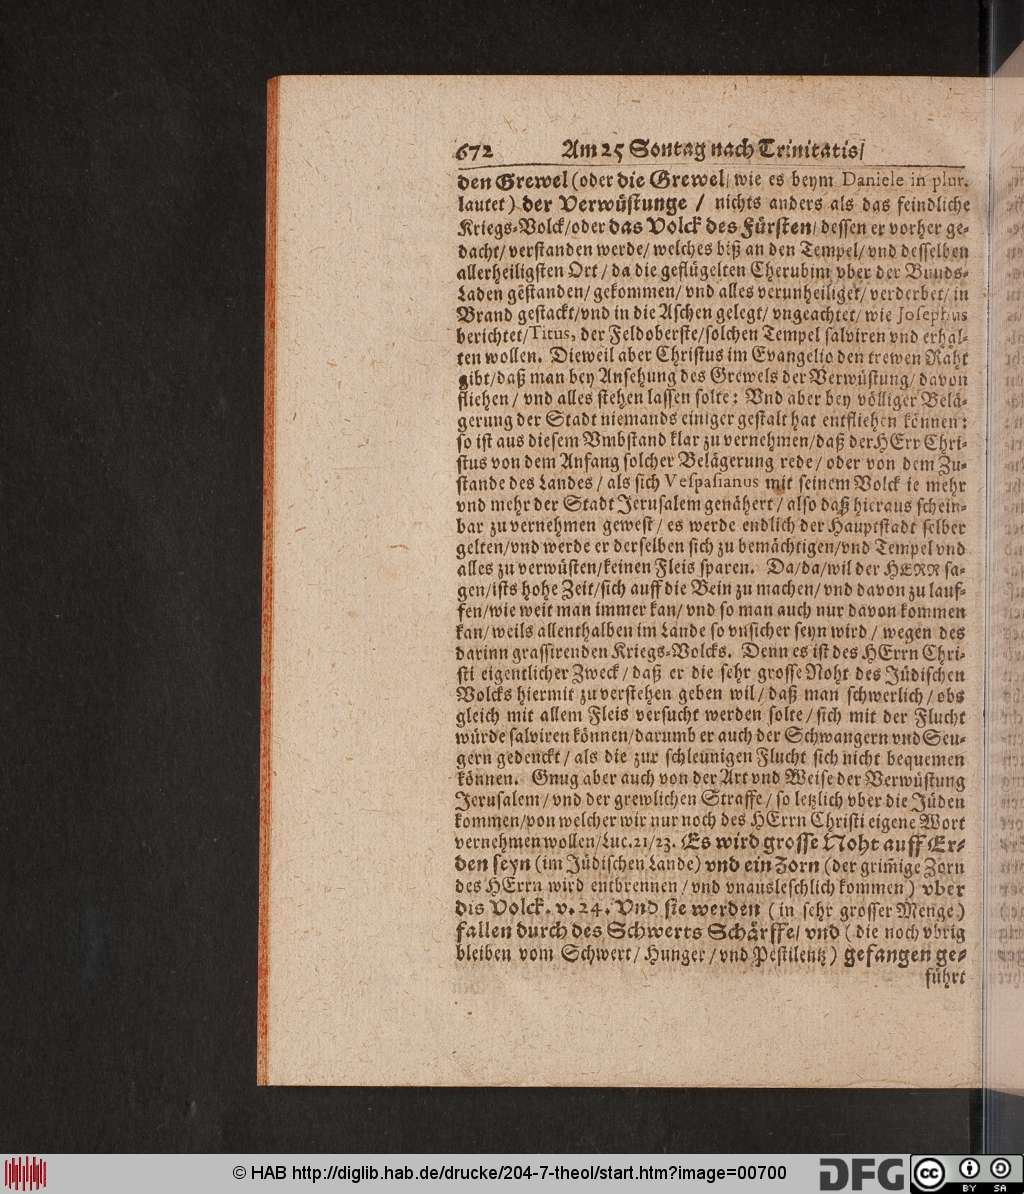 672 Am 25 Sontag nach Trinitatis/
den Grewel (oder die Grewel/ wie es beym Daniele in plur.
lautet) der Verwüstunge / nichts anders als das feindliche
Kriegs-Volck/oder das Volck des Fürsten/ dessen er vorher ge-
dacht/ verstanden werde/ welches biß an den Tempel/ vnd desselben
allerheiligsten Ort / da die geflügelten Cherubim vber der Bunds-
Laden gestanden/ gekommen/ vnd alles verunheiliget/ verderbet/ in
Brand gestackt/vnd in die Aschen gelegt/ vngeachtet/ wie Josephus
berichtet/Titus, der Feldoberste/solchen Tempel salviren vnd erhal-
ten wollen. Dieweil aber Christus im Evangelio den trewen Raht
gibt/daß man bey Ansehung des Grewels der Verwüstung/ davon
fliehen / vnd alles stehen lassen solte: Vnd aber bey völliger Belä-
gerung der Stadt niemands einiger gestalt hat entfliehen können:
so ist aus diesem Vmbstand klar zu vernehmen/daß der HErr Chri-
stus von dem Anfang solcher Belägerung rede/ oder von dem Zu-
stande des Landes / als sich Vespasianus mit seinem Volck ie mehr
vnd mehr der Stadt Jerusalem genähert / also daß hieraus schein-
bar zu vernehmen gewest / es werde endlich der Hauptstadt selber
gelten/vnd werde er derselben sich zu bemächtigen/vnd Tempel vnd
alles zu verwüsten/keinen Fleis sparen. Da/da/wil der HERR sa-
gen/ists hohe Zeit/sich auff die Bein zu machen/ vnd davon zu lauf-
fen/wie weit man immer kan/ vnd so man auch nur davon kommen
kan/ weils allenthalben im Lande so vnsicher seyn wird / wegen des
darinn grassirenden Kriegs-Volcks. Denn es ist des HErrn Chri-
sti eigentlicher Zweck / daß er die sehr grosse Noht des Jüdischen
Volcks hiermit zu verstehen geben wil/ daß man schwerlich / obs
gleich mit allem Fleis versucht werden solte / sich mit der Flucht
würde salviren können/darumb er auch der Schwangern vnd Seu-
gern gedenckt / als die zur schleunigen Flucht sich nicht bequemen
können. Gnug aber auch von der Art vnd Weise der Verwüstung
Jerusalem / vnd der grewlichen Straffe / so letzlich vber die Jüden
kommen/von welcher wir nur noch des HErrn Christi eigene Wort
vernehmen wollen/Luc.21/23. Es wird grosse Noht auff Er-
den seyn (im Jüdischen Lande) vnd ein Zorn (der grim̃ige Zorn
des HErrn wird entbrennen / vnd vnausleschlich kommen) vber
dis Volck. v. 24. Vnd sie werden (in sehr grosser Menge)
fallen durch des Schwerts Schärffe/ vnd (die noch vbrig
bleiben vom Schwert/ Hunger / vnd Pestilentz) gefangen ge-
führt
© HAB http://diglib.hab.de/drucke/204-7-theol/start.htm?image=00700
DFG
cc BY SA